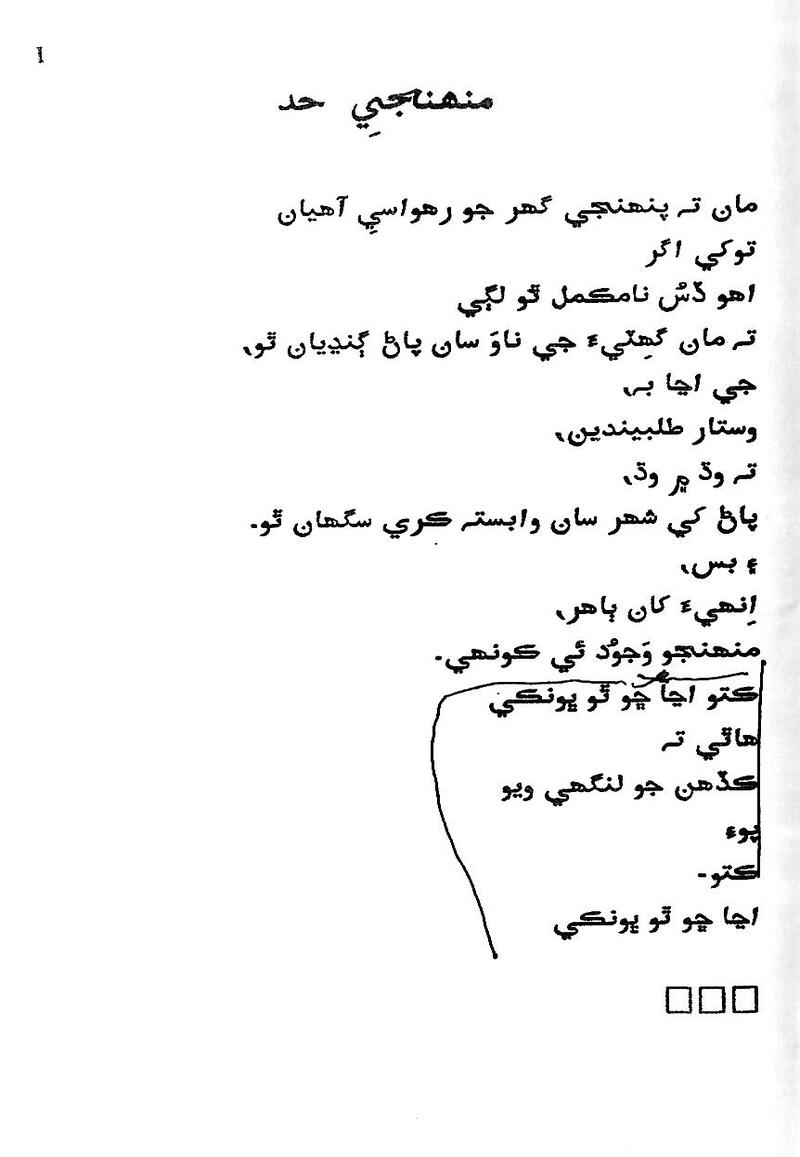 ١
منهنجيِ حد
مان ته پنهنجي گهر جو رهواسيِ آهيان
توکي اگر
اهو ڏسُ نامڪمل ٿو لڳي
ته مان گهِٽيءَ جي ناوَ سان پاڻ ڳنڍيان ٿو،
جي اڃا به،
وستار طلبيندين،
ته وڌ ۾ وڌ،
پاڻ کي شهر سان وابسته ڪري سگهان ٿو.
۽ بس،
اِنهيءَ کان ٻاهر،
منهنجو وَجوُد ئي ڪونهي.
ڪتو اڃا ڇو ٿو ڀونڪي
هاٿي ته
ڪڏهن جو لنگهي ويو
پوءِ
ڪتو-
اڃا ڇو ٿو ڀونڪي